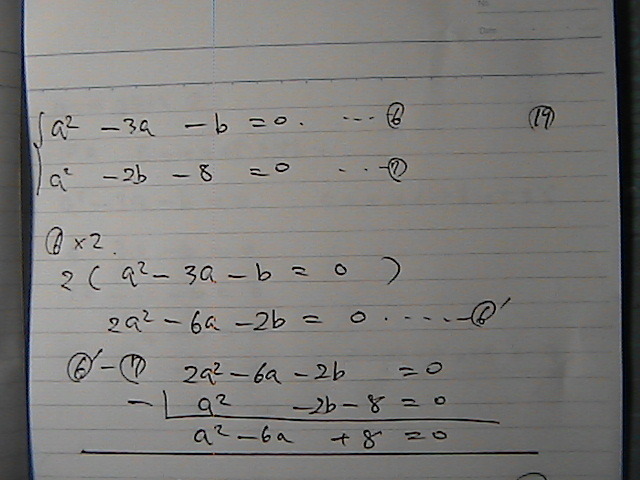 No.
Date
a² - 3a - b = 0. ... ⑥ ⑲
a² - 2b - 8 = 0 ... ⑦
⑥ × 2.
2 ( a² - 3a - b = 0 )
2a² - 6a - 2b = 0 ..... ⑥′
⑥′ - ⑦ 2a² - 6a - 2b = 0
- a² - 2b - 8 = 0
a² - 6a + 8 = 0